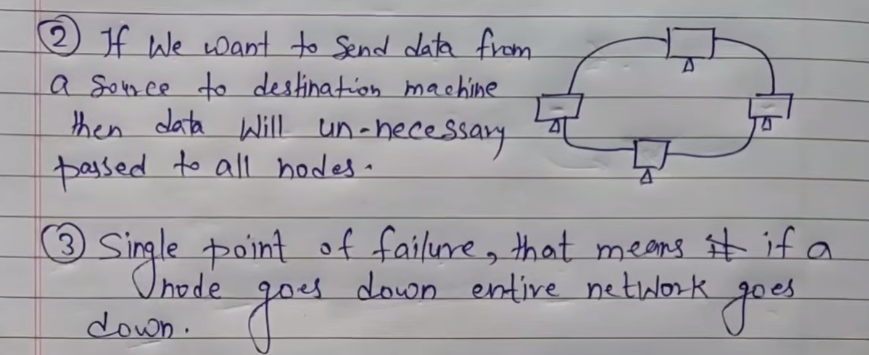 ② If We want to Send data from
a Source to destination machine
then data Will un-necessary
passed to all nodes.
③ Single point of failure, that means it if a
node goes down entire network goes
down.